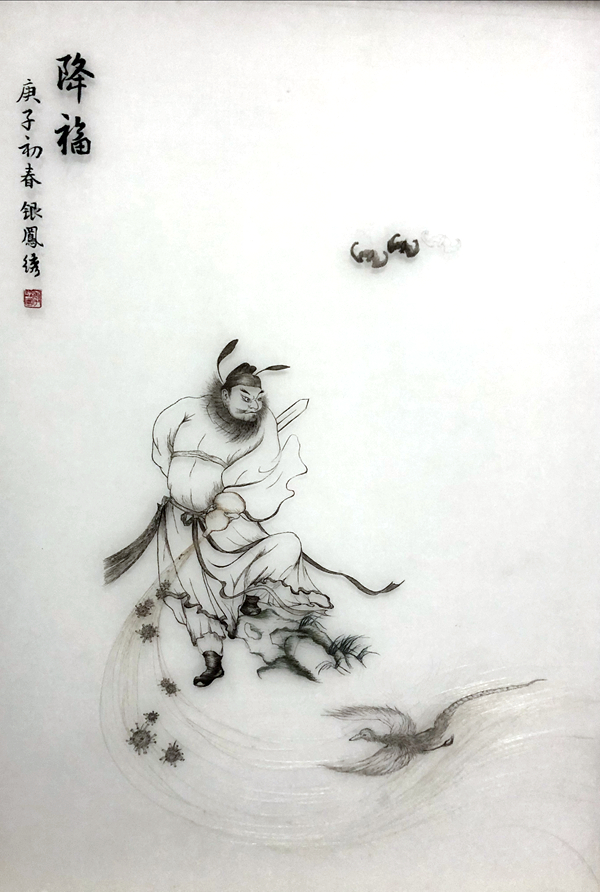 降福
庚子初春 银鳳绣